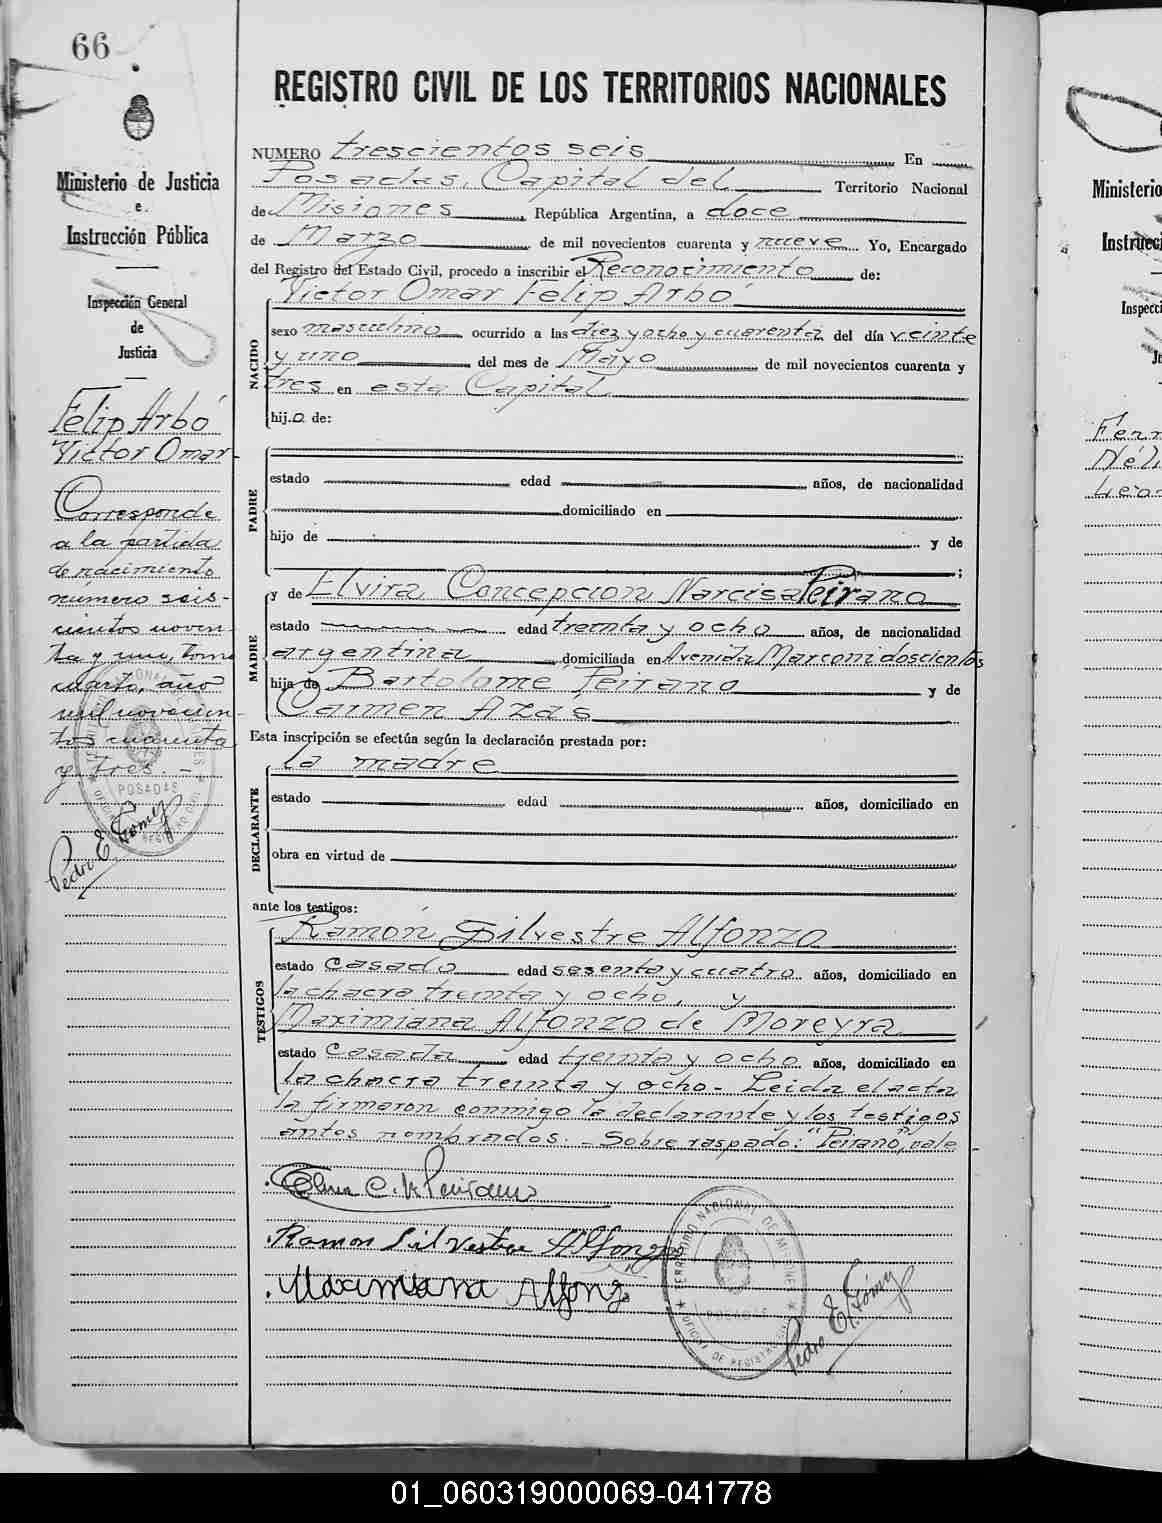 66
Ministerio de Justicia
e
Instrucción Pública
Inspección General
de
Justicia
Felip Arbó
Victor Omar
Corresponde
a la partida
de nacimiento
número seis-
cientos noven-
ta y uno, tomo
cuarto, año
mil novecien-
tos cuarenta
y tres. -
Pedro E. Gómez
REGISTRO CIVIL DE LOS TERRITORIOS NACIONALES
NUMERO trescientos seis En
Posadas, Capital del Territorio Nacional
de Misiones, República Argentina, a doce
de Marzo de mil novecientos cuarenta y nueve. Yo, Encargado
del Registro del Estado Civil, procedo a inscribir el Reconocimiento de:
NACIDO
Victor Omar Felip Arbó
sexo masculino ocurrido a las diez y ocho y cuarenta del día veinte
y uno del mes de Mayo de mil novecientos cuarenta y
tres en esta Capital
hijo de:
PADRE
estado edad años, de nacionalidad
domiciliado en
hijo de y de
;
MADRE
y de Elvira Concepcion Narcisa Peirano
estado edad treinta y ocho años, de nacionalidad
argentina domiciliada en Avenida Marconi doscientos
hija de Bartolomé Peirano y de
Carmen Azas
Esta inscripción se efectúa según la declaración prestada por:
DECLARANTE
la madre
estado edad años, domiciliado en
obra en virtud de
ante los testigos:
TESTIGOS
Ramón Silvestre Alfonzo
estado casado edad sesenta y cuatro años, domiciliado en
la chacra treinta y ocho, y
Maximiana Alfonzo de Moreyra
estado casada edad treinta y ocho años, domiciliado en
la chacra treinta y ocho- Leida el acta
la firmaron conmigo la declarante y los testigos
antes nombrados. - Sobre raspado: "Peirano", vale
Elvira C. N. Peirano
Ramon Silvestre Alfonzo
Maximiana Alfonzo
TERRITORIO NACIONAL DE MISIONES
POSADAS
OFICINA DE REGISTRO CIVIL
Pedro E. Gómez
Ministerio
Instrucci
Inspecci
Ju
Ferr
Néli
Leon
01_060319000069-041778